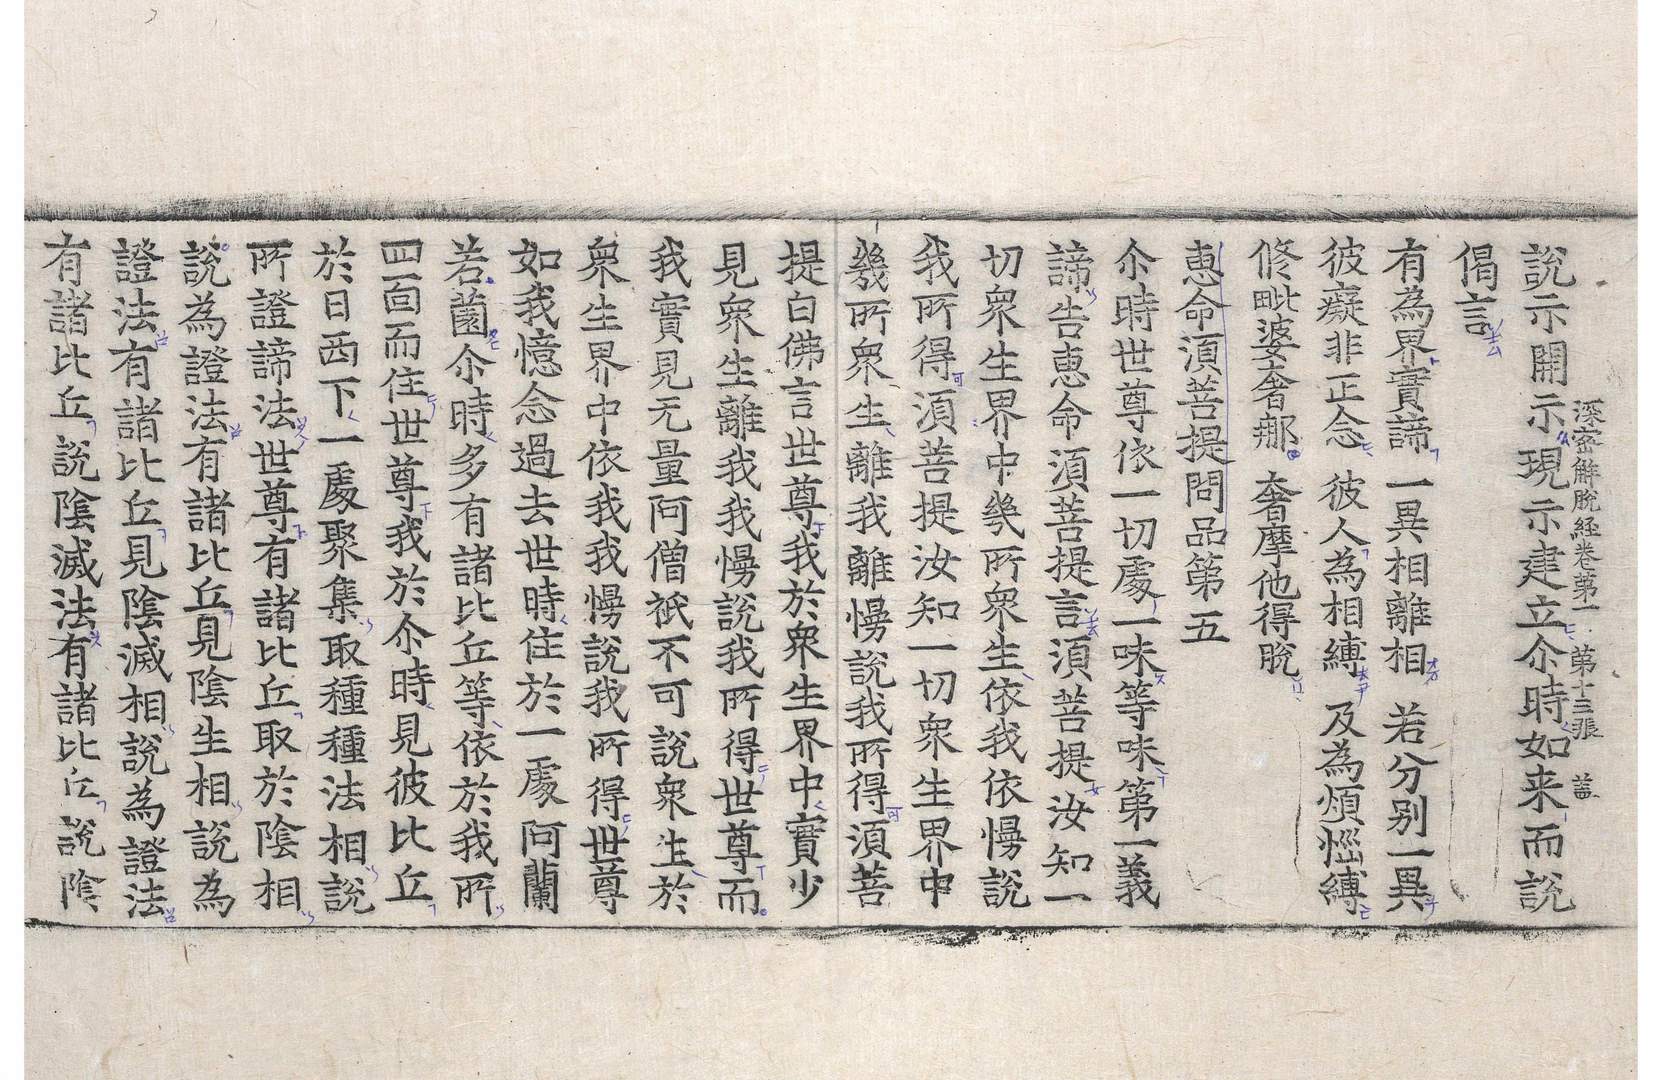 深密解脫経卷第一 第十三張 盖
說示開示現示建立尒時如来而說
偈言
有為界實諦 一異相離相 若分別一異
彼癡非正念 彼人為相縛 及為煩惱縛
修毗婆奢那 奢摩他得脫
惠命湏菩提問品第五
尒時世尊依一切處一味等味第一義
諦告惠命湏菩提言湏菩提汝知一
切衆生界中幾所衆生依我依慢說
我所得湏菩提汝知一切衆生界中
幾所衆生離我離慢說我所得湏菩
提白佛言世尊我於衆生界中實少
見衆生離我我慢說我所得世尊而
我實見无量阿僧祇不可說衆生於
衆生界中依我我慢說我所得世尊
如我憶念過去世時住於一處阿蘭
若薗尒時多有諸比丘等依於我所
四面而住世尊我於尒時見彼比丘
於日西下一處聚集取種種法相說
所證諦法世尊有諸比丘取於陰相
說為證法有諸比丘見陰生相說為
證法有諸比丘見陰滅相說為證法
有諸比丘說陰滅法有諸比丘說陰